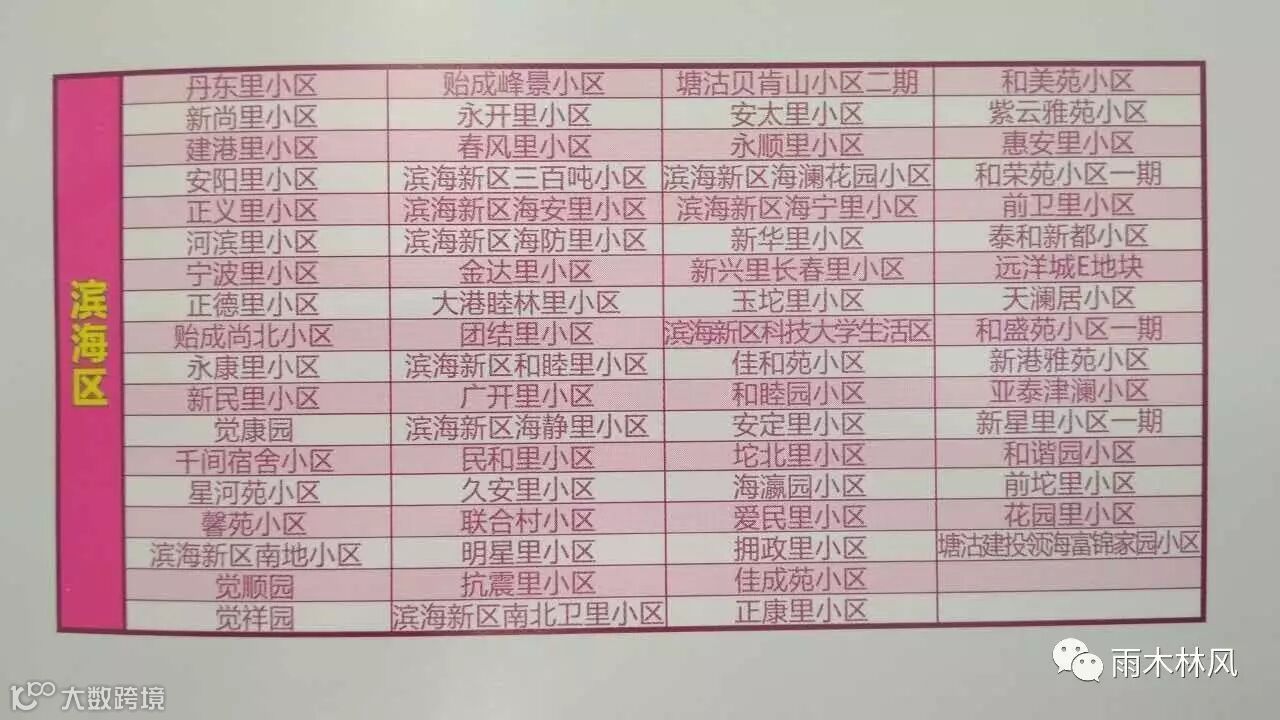 滨海区
丹东里小区 贻成峰景小区 塘沽贝肯山小区二期 和美苑小区
新尚里小区 永开里小区 安太里小区 紫云雅苑小区
建港里小区 春风里小区 永顺里小区 惠安里小区
安阳里小区 滨海新区三百吨小区 滨海新区海澜花园小区 和荣苑小区一期
正义里小区 滨海新区海安里小区 滨海新区海宁里小区 前卫里小区
河滨里小区 滨海新区海防里小区 新华里小区 泰和新都小区
宁波里小区 金达里小区 新兴里长春里小区 远洋城E地块
正德里小区 大港睦林里小区 玉坨里小区 天澜居小区
贻成尚北小区 团结里小区 滨海新区科技大学生活区 和盛苑小区一期
永康里小区 滨海新区和睦里小区 佳和苑小区 新港雅苑小区
新民里小区 广开里小区 和睦园小区 亚泰津澜小区
觉康园 滨海新区海静里小区 安定里小区 新星里小区一期
千间宿舍小区 民和里小区 坨北里小区 和谐园小区
星河苑小区 久安里小区 海瀛园小区 前坨里小区
馨苑小区 联合村小区 爱民里小区 花园里小区
滨海新区南地小区 明星里小区 拥政里小区 塘沽建投领海富锦家园小区
觉顺园 抗震里小区 佳成苑小区
觉祥园 滨海新区南北卫里小区 正康里小区
雨木林风
大数跨境